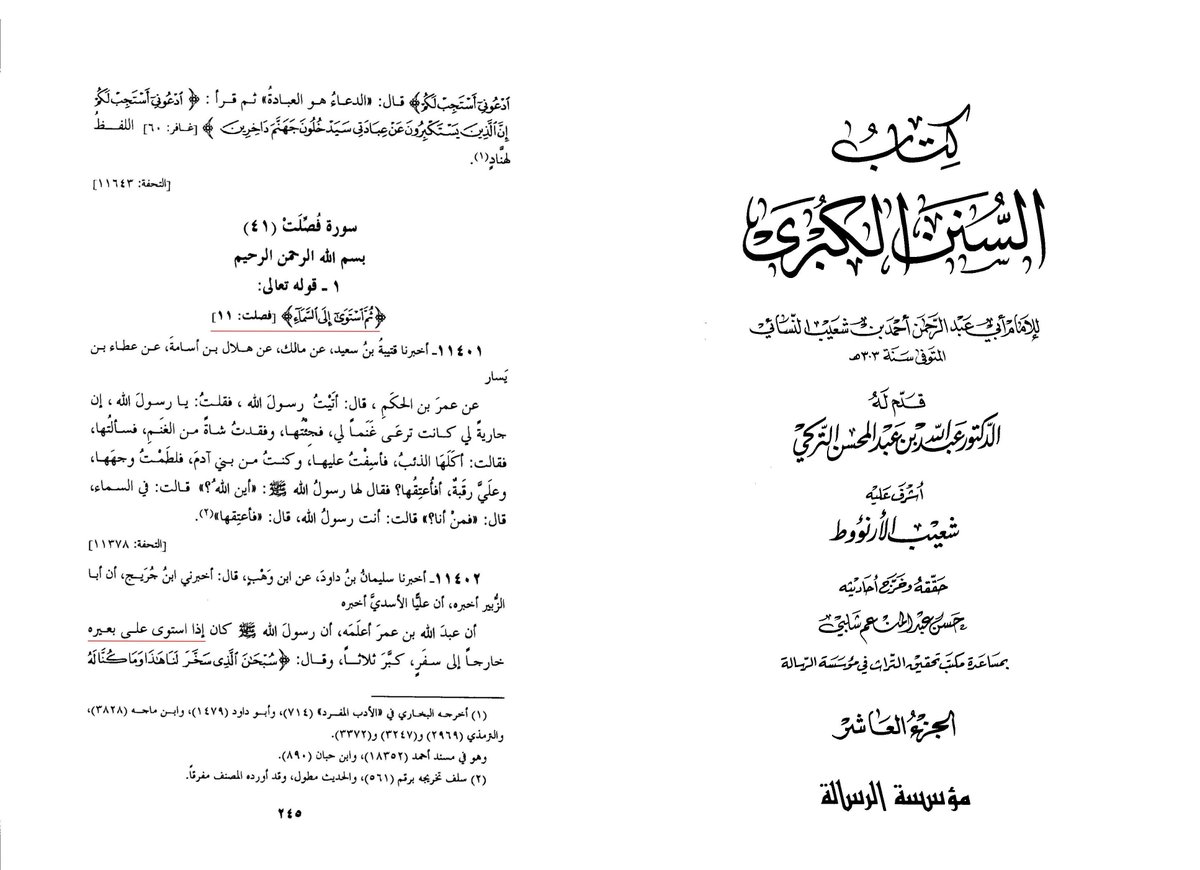 كِتَابُ
السُّنَنِ الكُبْرَى
للإمَام أبي عَبد الرَّحمٰن أحمَد بن شعَيب النّسَائي
المتوفى سَنة ٣٠٣هـ
قَدّم لَهُ
الدكتور عَبد الله بن عَبد المحسن التركي
أشرَف عَليه
شعَيب الأرنؤوط
حَقّقهُ وخرّج أحَاديثه
حَسَن عَبد المنعم شلبي
بمسَاعَدة مكتب تحقيق التراث في مؤسَسَة الرسَالة
الجزء العَاشر
مؤسسة الرسالة
ٱدْعُونِىٓ أَسْتَجِبْ لَكُمْ﴾ قال: «الدعاءُ هو العبادةُ» ثم قرأ: ﴿ٱدْعُونِىٓ أَسْتَجِبْ لَكُمْ
إِنَّ ٱلَّذِينَ يَسْتَكْبِرُونَ عَنْ عِبَادَتِى سَيَدْخُلُونَ جَهَنَّمَ دَاخِرِينَ﴾ [غافر: ٦٠] اللفظُ
لهنَّادٍ(١).
[التحفة: ١١٦٤٣]
سورة فُصِّلَتْ (٤١)
بسم الله الرحمن الرحيم
١ ـ قوله تعالى:
﴿ثُمَّ ٱسْتَوَىٰٓ إِلَى ٱلسَّمَآءِ﴾ [فصلت: ١١]
١١٤٠١ـ أخبرنا قتيبةُ بنُ سعيد، عن مالك، عن هلال بن أسامةَ، عن عطاء بن
يَسار
عن عمرَ بن الحكَمِ، قال: أتَيْتُ رسولَ الله، فقلتُ: يا رسولَ الله، إن
جاريةً لي كانت ترعَى غَنَماً لي، فجِئْتُها، وفقدتُ شاةً من الغنَمِ، فسألتُها،
فقالت: أكَلَهَا الذئبُ، فأسِفْتُ عليها، وكنتُ من بني آدمَ، فلطَمْتُ وجهَها،
وعلَيَّ رقَبةٌ، أفأُعتِقُها؟ فقال لها رسولُ الله ﷺ: «أين اللهُ؟» قالت: في السماء،
قال: «فمنْ أنا؟» قالت: أنت رسولُ الله، قال: «فأعتِقها»(٢).
[التحفة: ١١٣٧٨]
١١٤٠٢ـ أخبرنا سليمانُ بنُ داودَ، عن ابن وَهْبٍ، قال: أخبرني ابنُ جُرَيج، أن أبا
الزُّبير أخبره، أن عليًّا الأسديَّ أخبره
أن عبدَ الله بن عمرَ أعلَمَه، أن رسولَ الله ﷺ كان إذا استوى على بعيره
خارجاً إلى سفَرٍ، كبَّرَ ثلاثاً، وقال: ﴿سُبْحَٰنَ ٱلَّذِى سَخَّرَ لَنَا هَٰذَا وَمَا كُنَّا لَهُۥ
(١) أخرجه البخاري في «الأدب المفرد» (٧١٤)، وأبو داود (١٤٧٩)، وابن ماجه (٣٨٢٨)،
والترمذي (٢٩٦٩) و(٣٢٤٧) و(٣٣٧٢).
وهو في مسند أحمد (١٨٣٥٢)، وابن حبان (٨٩٠).
(٢) سلف تخريجه برقم (٥٦١)، والحديث مطول، وقد أورده المصنف مفرقاً.
٢٤٥